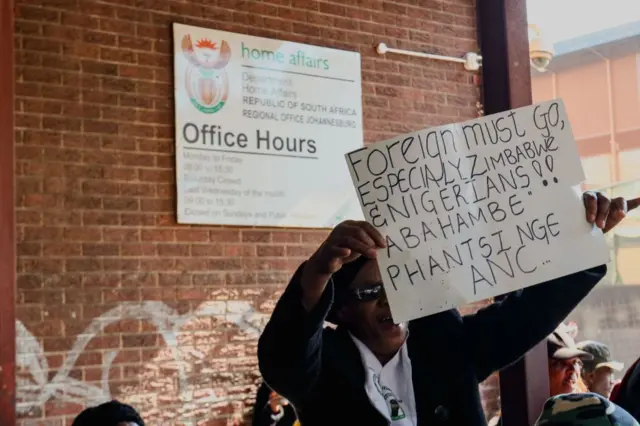 home affairs
Department:
Home Affairs
REPUBLIC OF SOUTH AFRICA
REGIONAL OFFICE JOHANNESBURG
Office Hours
Monday to Friday
Saturday Closed
Last Wednesday of the month
Closed on Sundays and
FOREIGN MUST GO,
ESPECIALLY ZIMBABWE
& NIGERIANS!!
"ABAHAMBE"
PHANTSI NGE
ANC...